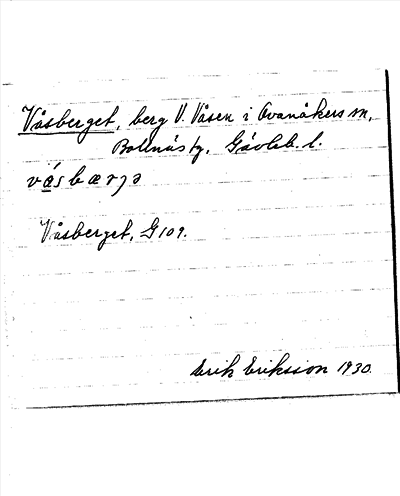 Våsberget, berg V. Våsen i Ovanåkers sn,
Bollnäs tg. Gävleb. l.
vǻsbærjə
Våsberget, G 109.
Erik Eriksson 1930.